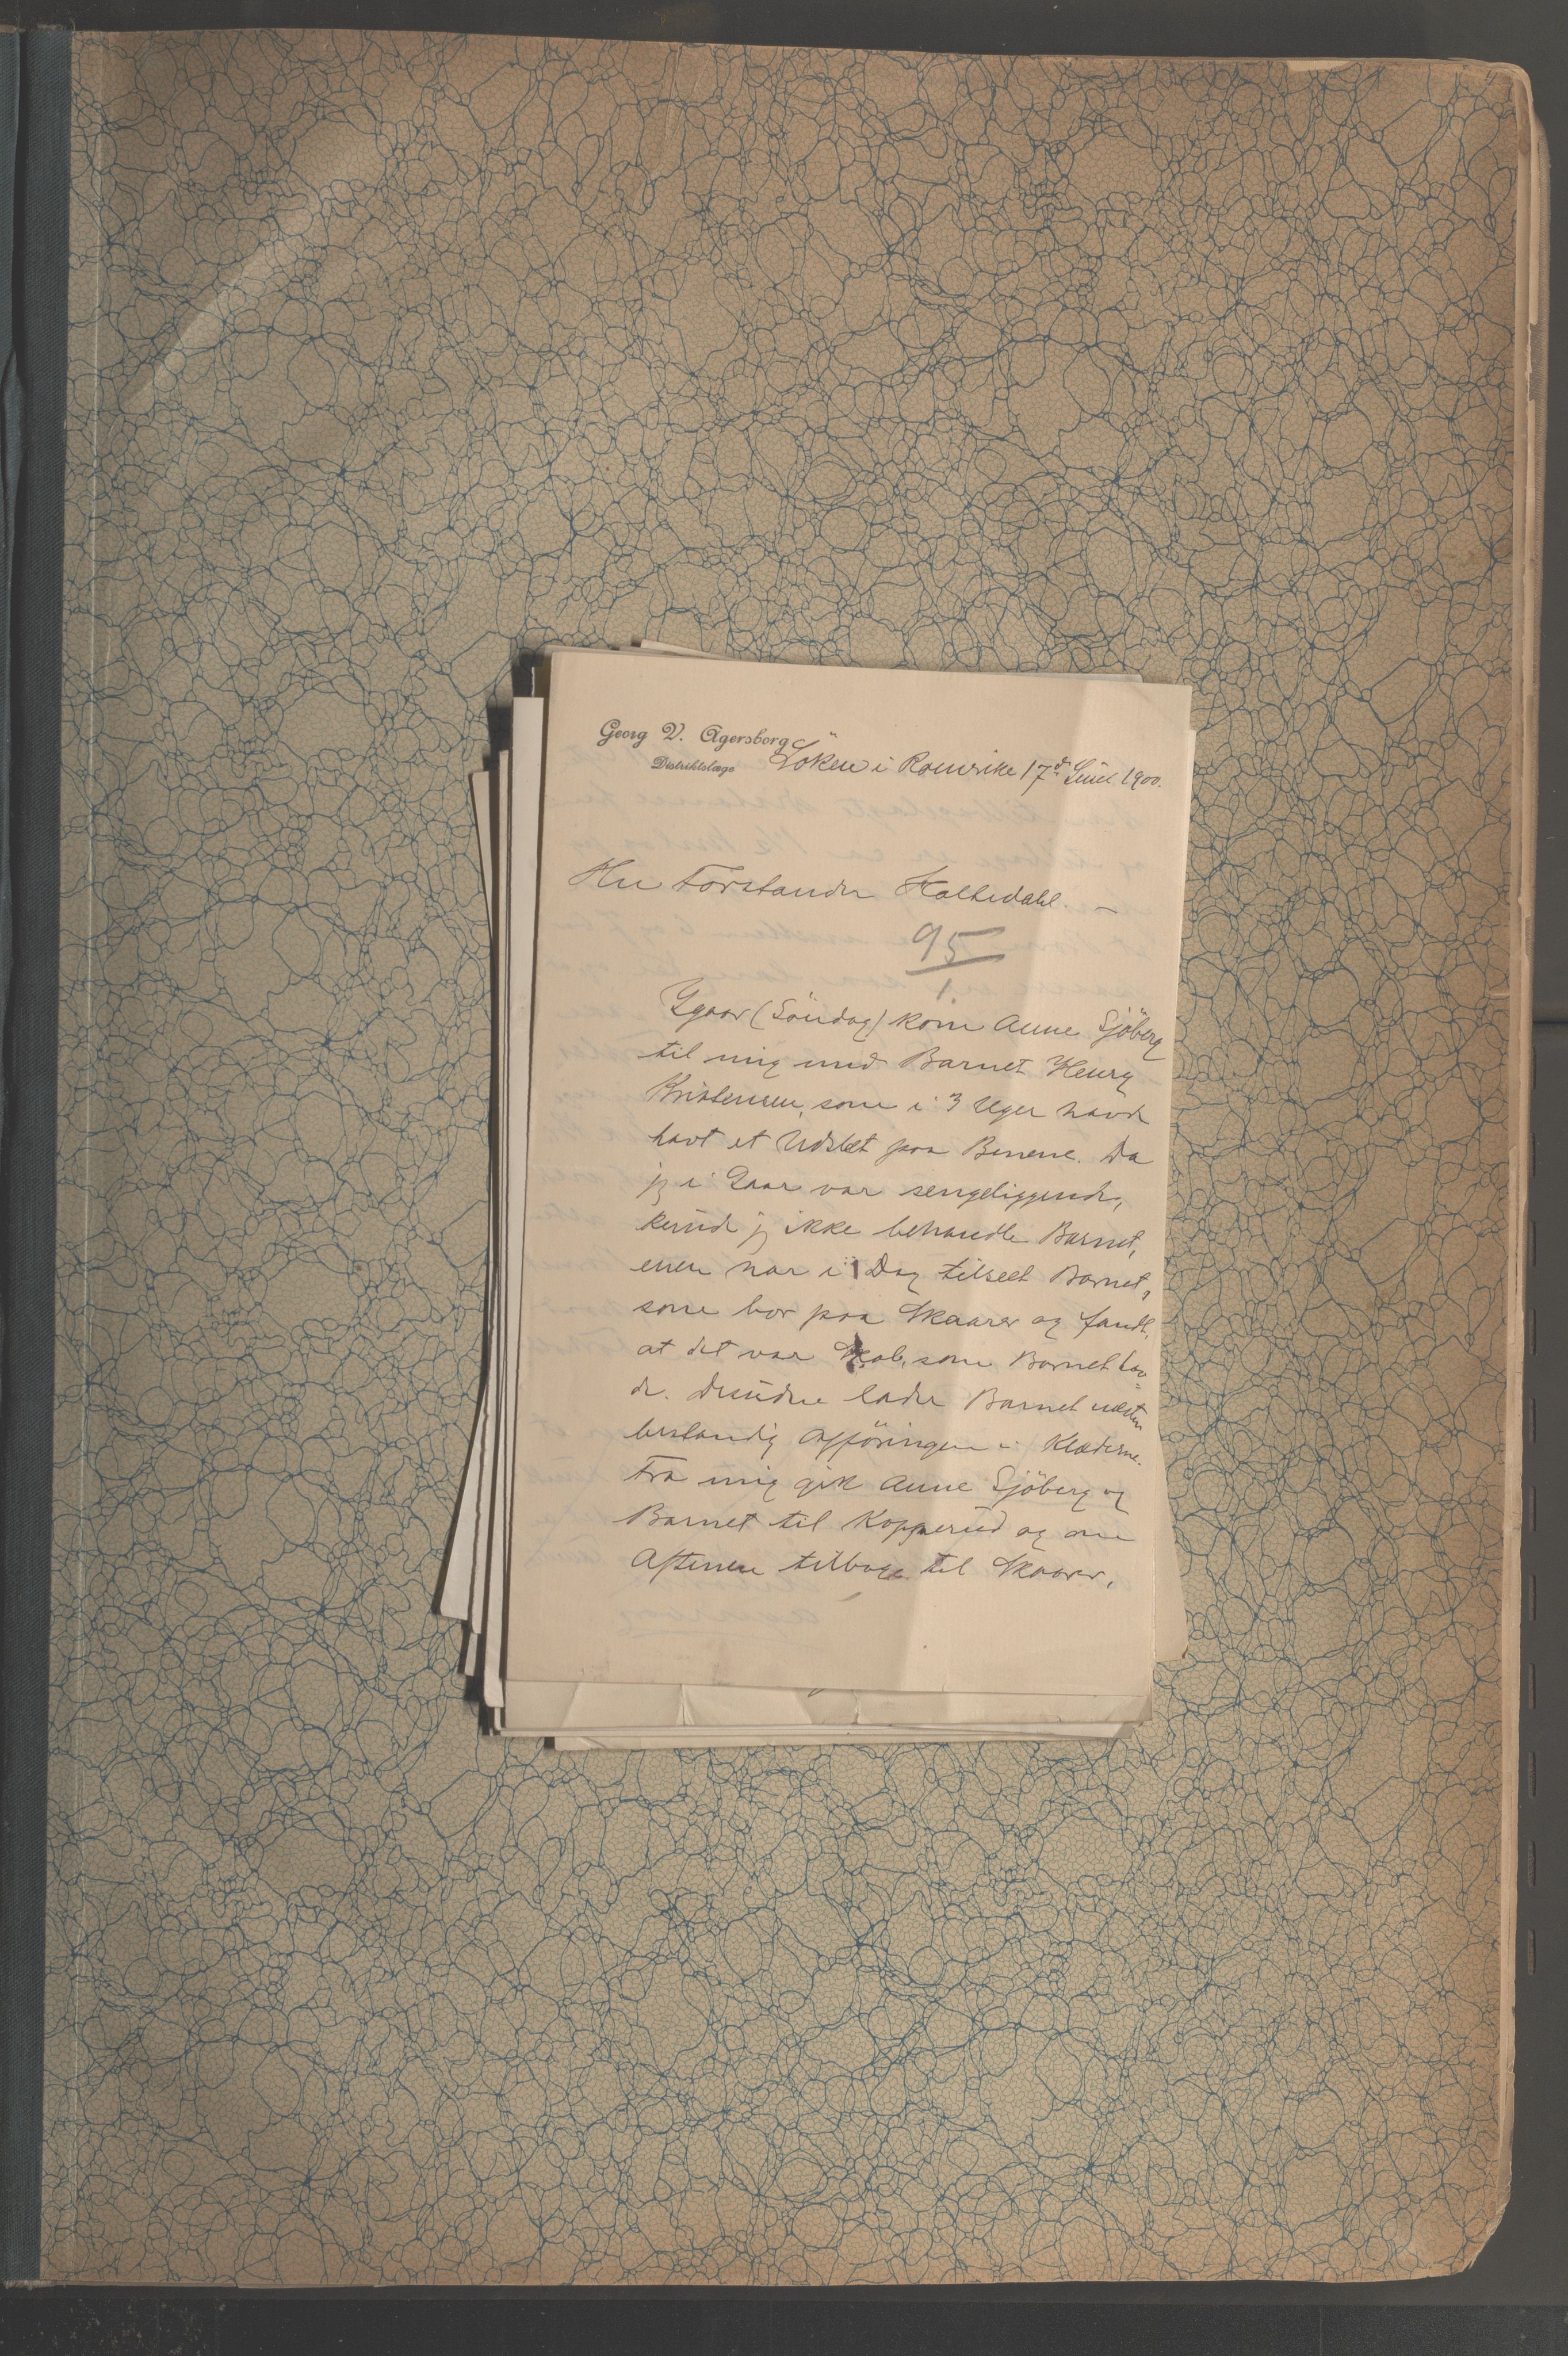 Georg V. Agersborg
Distriktslæge
Löken i Romerike 17d 1900.
Hr Forstander Holtedahl. –
95
1.
Igaar (Söndag) kom Anne Sjöberg
til mig med Barnet Henry
Kristensen, som i 3 Uger havde
havt et Udslet paa Benene. Da
jeg i Gaar var sengeliggende,
kunde jeg ikke behandle Barnet,
men har i Dag tilseet Barnet,
som bor paa Skaarer og fandt,
at det var Skab, som Barnet hav=
de. Desuden lader Barnet næsten
bestandig Afföringen i Klæderne.
Fra mig gik Anne Sjöberg og
Barnet til Kopperud og om
Aftenen tilbage til Skaarer,